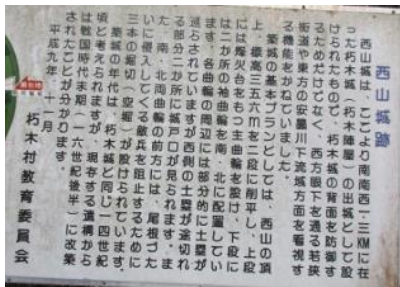 西山城跡
西山城は、ここより南南西一・三KMに在
った朽木城(朽木陣屋)の出城として設
けられたもので、朽木城の背面を防御す
るためだけでなく、西方眼下を通る若狭
街道や東方の安曇川下流域方面を看視す
る機能をかねていました。
築城の基本プランとしては、西山の頂
上、最高三五六mを二段に削平し、上段
には烽火台をもつ主曲輪を設け、下段に
は二か所の袖曲輪を南、北に配置してい
ます。各曲輪の周辺には部分的に土塁が
巡らされていますが西側の土塁が途切れ
る部分二か所に城戸口が見られます。ま
た、南、北両曲輪の前方には、尾根づた
いに侵入してくる敵兵を阻止するために
三本の堀切(空堀)が設けられています。
築城の年代は、朽木城と同じ一四世紀
頃と考えられますが、現存する遺構から
は戦国時代末期(一六世紀後半)に改築
されたことが分かります。
平成九年 十一月
朽木村教育委員会